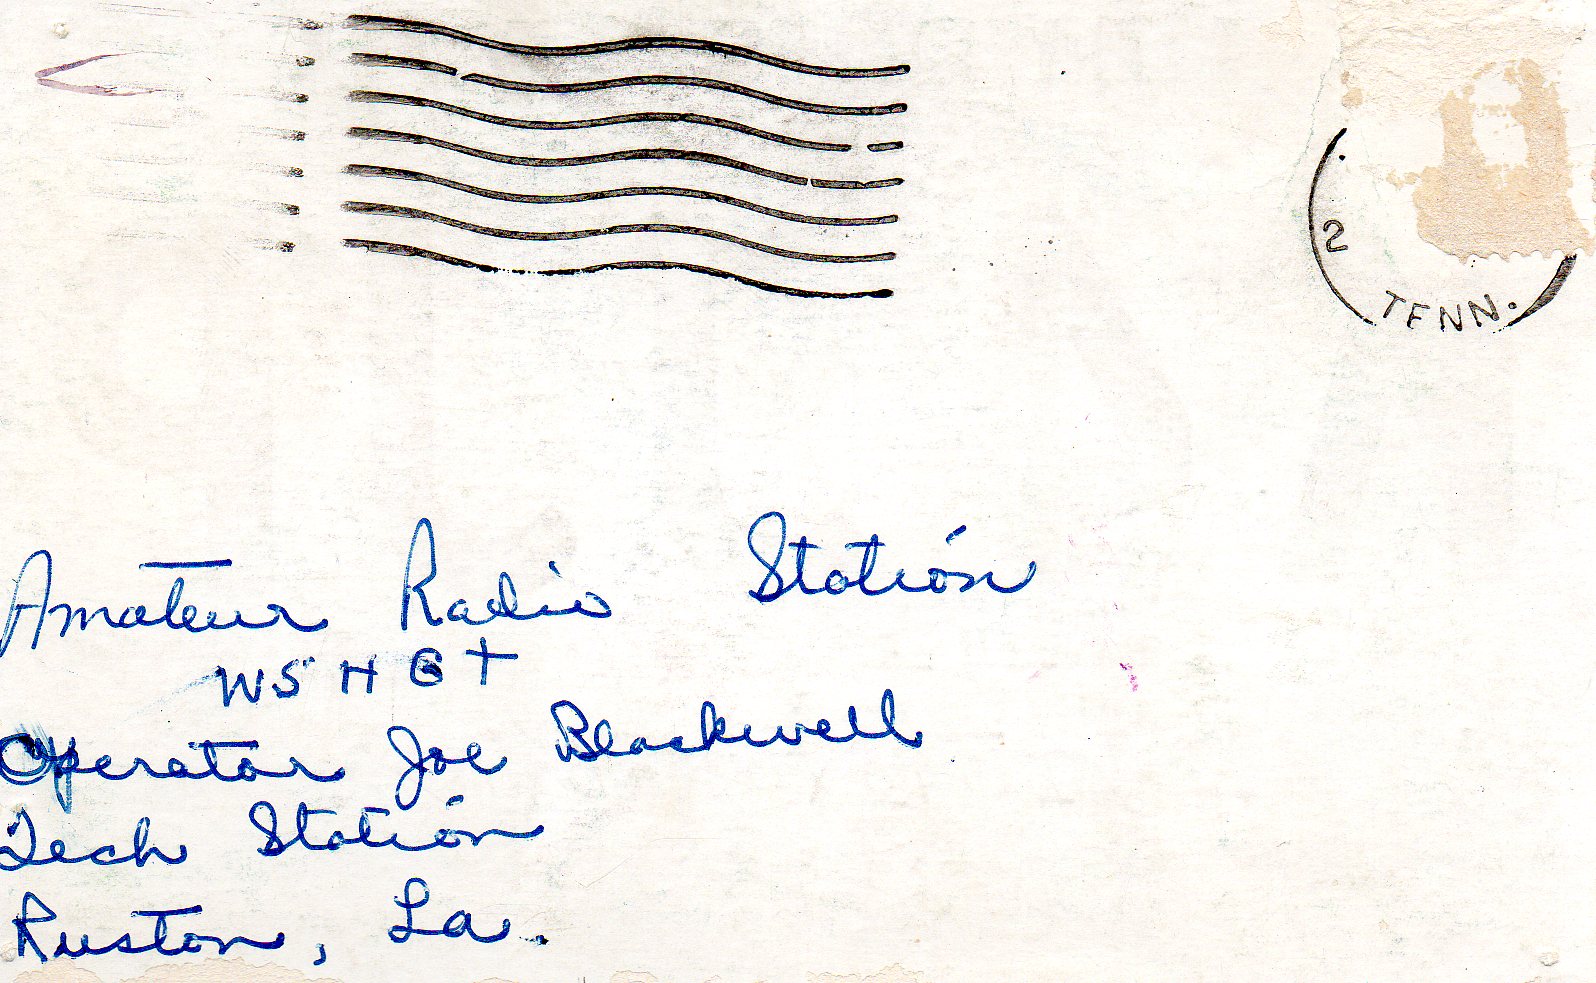 2
TENN.
Amateur Radio Station
W5 H G T
Operator Joe Blackwell
Tech Station
Ruston, La.